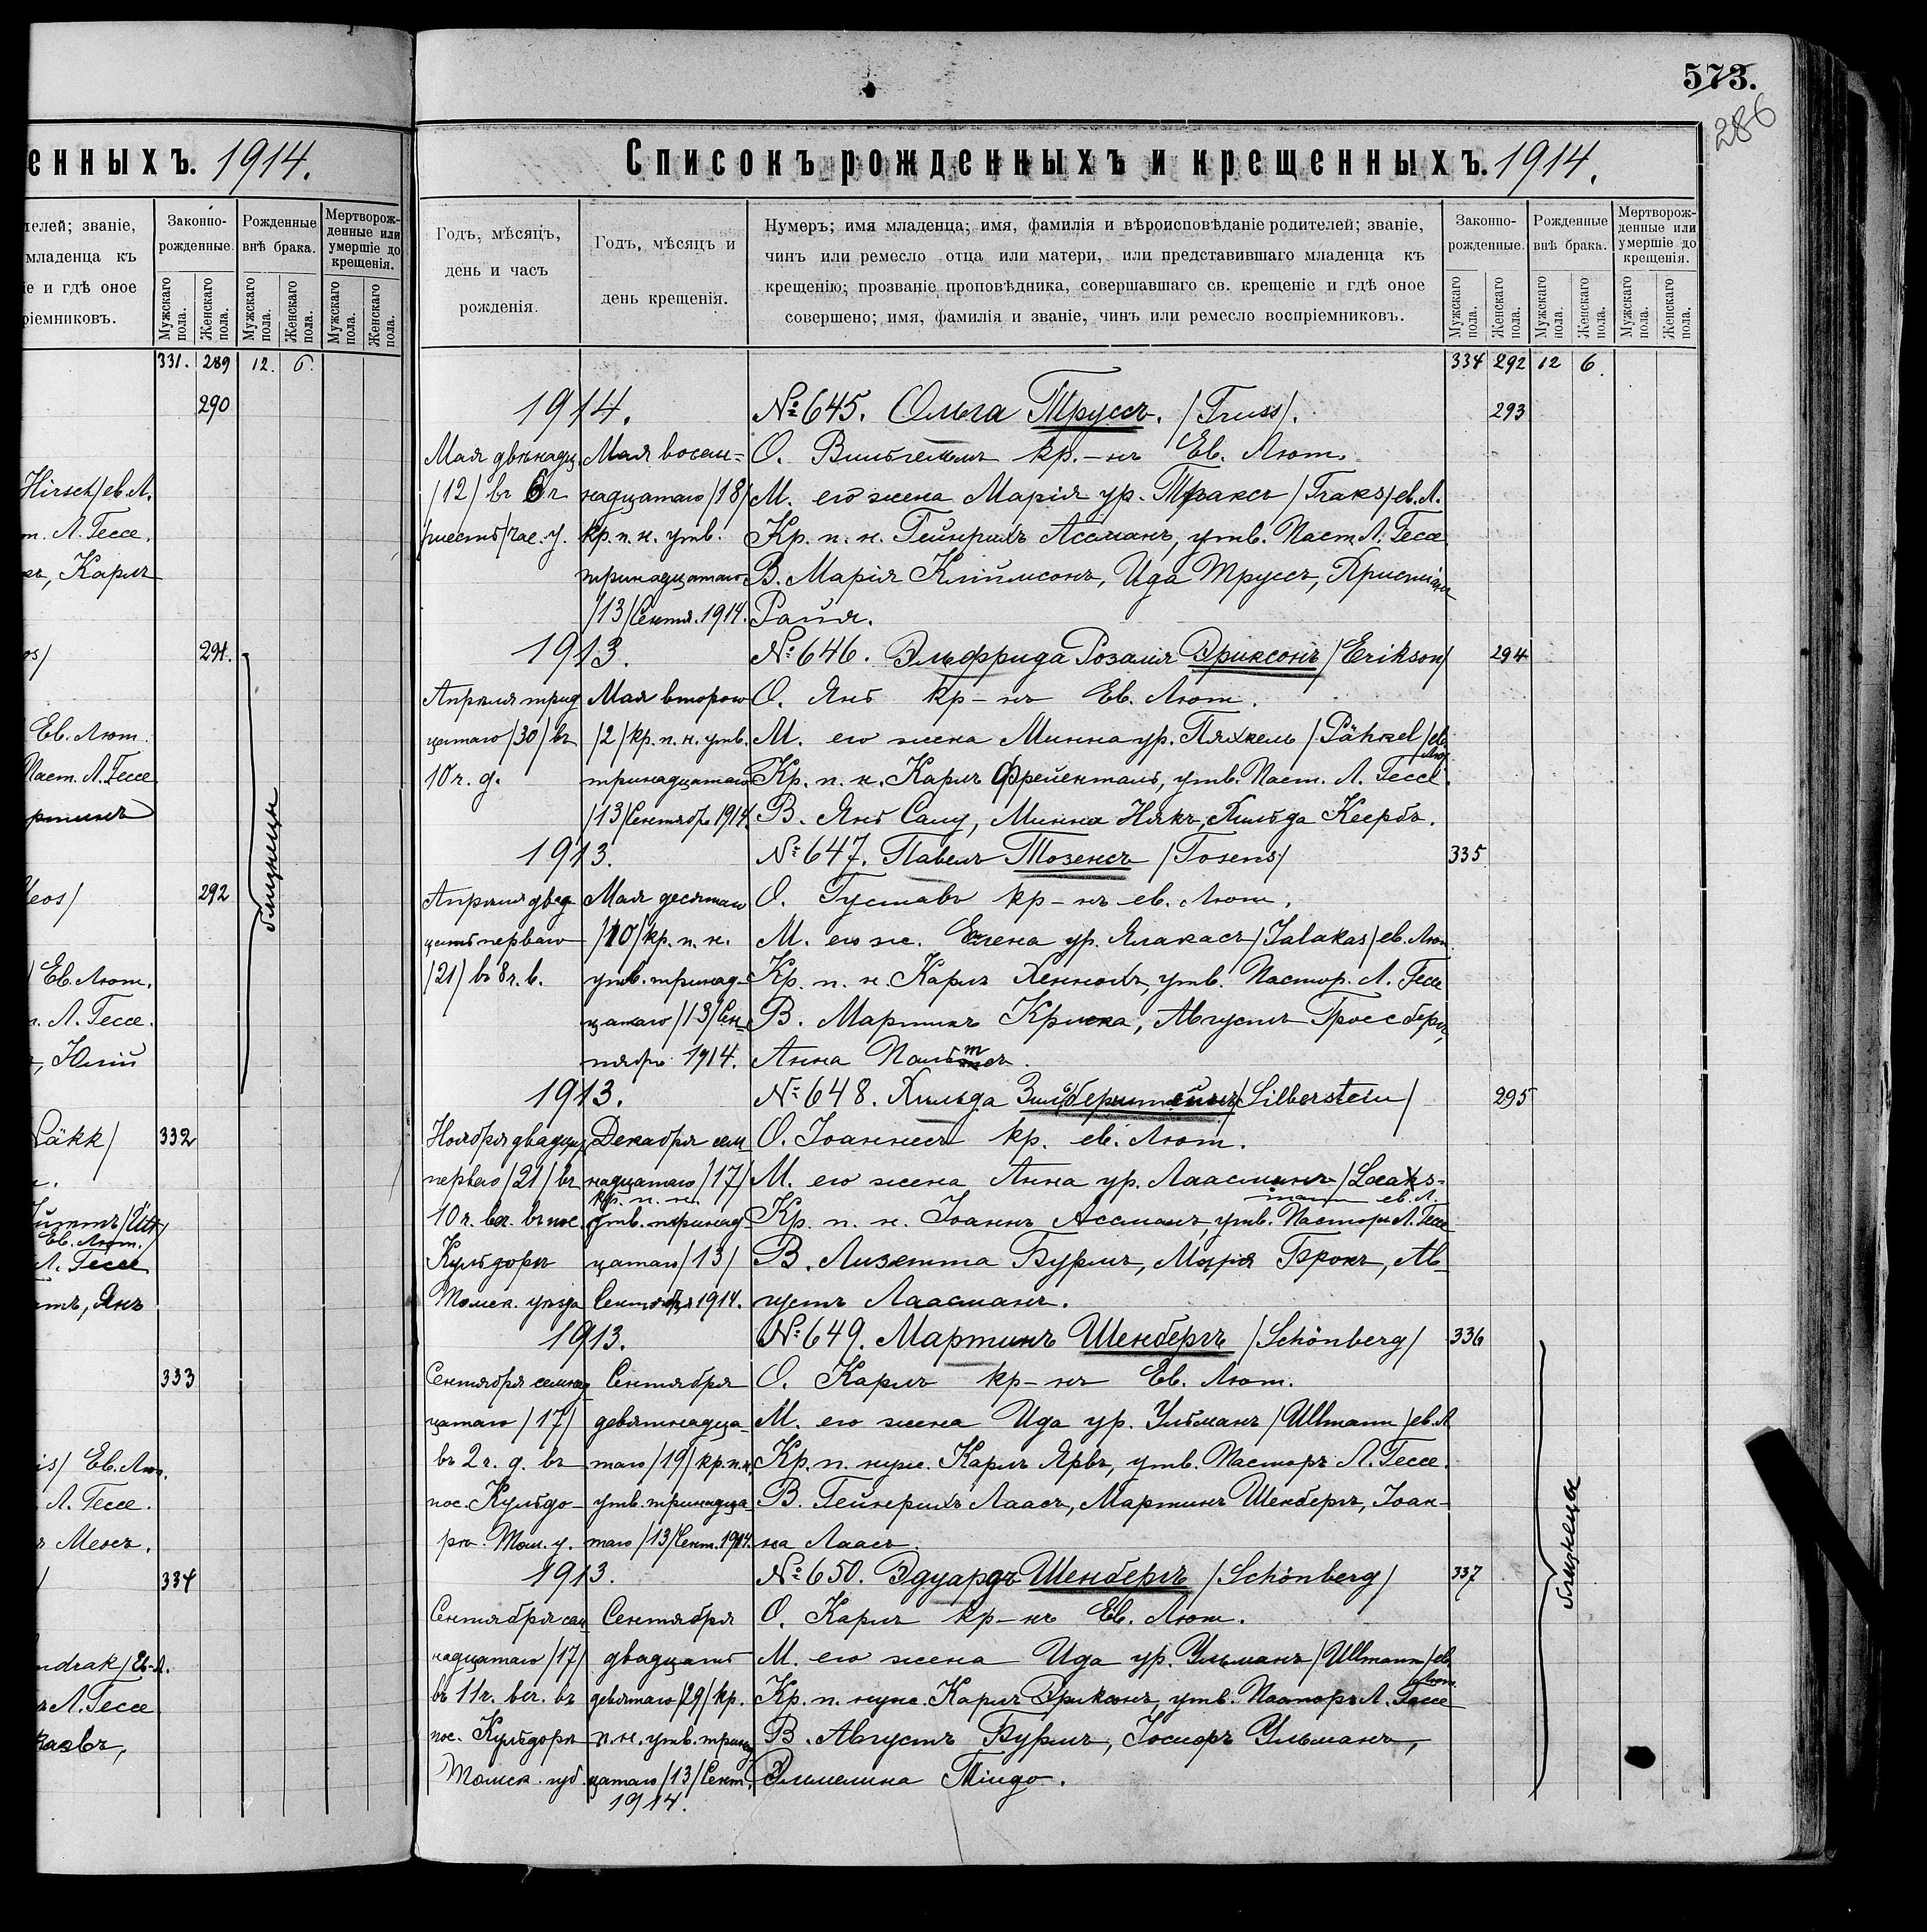 573.
286
енныхъ. 1914.
телей; званіе,
младенца къ
іе и гдѣ оное
ріемниковъ.
Законно-
рожденные.
Рожденные
внѣ брака.
Мертворож-
денные или
умершіе до
крещенія.
Мужскаго пола.
Женскаго пола.
Мужскаго пола.
Женскаго пола.
Мужскаго пола.
Женскаго пола.
331. 289 12. 6.
290
Hirsch/ ев. Л.
т. Л. Гессе.
Карлъ
os/ 291.
Ев. Лют.
Паст. Л. Гессе
близнецы
eos/ 292
Ев. Лют.
Л. Гессе.
Юлій
Päkk/ 332
Ев. Лют.
Л. Гессе
Янъ
333
is/ Ев. Лют.
Л. Гессе.
334
ndrak/ Ев. Л.
Л. Гессе
Списокъ рожденныхъ и крещенныхъ. 1914.
Годъ, мѣсяцъ,
день и часъ
рожденія.
Годъ, мѣсяцъ и
день крещенія.
Нумеръ; имя младенца; имя, фамилія и вѣроисповѣданіе родителей; званіе,
чинъ или ремесло отца или матери, или представившаго младенца къ
крещенію; прозваніе проповѣдника, совершавшаго св. крещеніе и гдѣ оное
совершено; имя, фамилія и званіе, чинъ или ремесло воспріемниковъ.
Законно-
рожденные.
Рожденные
внѣ брака.
Мертворож-
денные или
умершіе до
крещенія.
Мужскаго пола.
Женскаго пола.
Мужскаго пола.
Женскаго пола.
Мужскаго пола.
Женскаго пола.
334 292 12 6.
1914. №645. Ольга Труссъ. /Truss/. 293
Мая двѣнадц Мая восем= О. Вильгельмъ кр.-нъ Ев. Лют.
/12/ въ 6 ч надцатаго /18/ М. его жена Марія ур. Траксъ /Traks/ ев. Л.
/шесть/ час. у. кр. п. н. утв. Кр. п. н. Гейнрихъ Ассманъ, утв. Паст Л. Гессе
тринадцатаго В. Марія Кліймсонъ, Ида Труссъ, Христіанъ
/13/ Сентя. 1914. Райя.
1913. №646. Эльфрида Розалія Эриксонъ /Erikson/ 294
Апрѣля трид Мая второго О. Янъ кр-нъ Ев. Лют.
цатаго /30/ въ /2/ кр. п. н. утв. М. его жена Минна ур. Пяхкель /Pähkel/ ев. Лют
10 ч. д. тринадцатаго Кр. п. н. Карлъ Фрейенталь, утв. Паст. Л. Гессе.
/13/ Сентябр 1914. В. Янъ Салу, Минна Някъ, Хильда Кеербъ.
1913. №647. Павелъ Тозенсъ /Tosens/ 335
Апрѣля двад Мая десятаго О. Густавъ кр-нъ ев. Лют.
цать перваго /10/ кр. п. н. М. его ж. Елена ур. Ялакасъ /Jalakas/ ев. Лют.
/21/ въ 8 ч. в. утв. тринад- Кр. п. н. Карлъ Хеннохъ, утв. Пастор. Л. Гессе
цатаго /13/ Сен- В. Мартинъ Крикка, Августъ Гроссбергъ,
тябр 1914. Анна
1913. №648. Хильда Зильберштейнъ /Silberstein/ 295
Ноября двадцать Декабря сем О. Іоаннесъ кр. ев. Лют.
перваго /21/ въ надцатаго /17/ М. его жена Анна ур. Лаасманъ /Laaks-
mann ев. Л.
кр. п. н.
10 ч. веч. въ пос. утв. тринад- Кр. п. н. Іоаннъ Ассманъ, утв. Пасторъ Л. Гессе
Кульдоръ цатаго /13/ В. Лизетта Бурмъ, Марія Брокъ, Ав-
Томск. уѣзда Сентября 1914. густъ Лаасманъ.
1913. №649. Мартинъ Шенбергъ /Schönberg/ 336
Сентября семнад Сентября О. Карлъ кр-нъ Ев. Лют.
цатаго /17/ девятнадца- М. его жена Ида ур. Ульманъ /Ullmann/ ев. Л
въ 2 ч. д. въ таго /19/ кр. п. н. Кр. п. нуж. Карлъ Ярвъ, утв. Пасторъ Л. Гессе.
пос. Кульдо- утв. тринадца- В. Гейнрихъ Лаасъ, Мартинъ Шенбергъ, Іоан-
ръ. Том. у. таго /13/ Сент. 1914. на Лаасъ.
1913. №650. Эдуардъ Шенбергъ /Schönberg/ 337
Сентября сем Сентября О. Карлъ кр-нъ Ев. Лют.
надцатаго /17/ двадцать М. его жена Ида ур. Ульманъ /Ullmann/ ев. Лют.
въ 11 ч. веч. въ девятаго /29/ кр. Кр. п. нуж. Карлъ Эриксонъ, утв. Пасторъ Л. Гессе
пос. Кульдоръ п. н. утв. тринад В. Августъ Бурмъ, Іосифъ Ульманъ,
Томск. губ. цатаго /13/ Сент. Эммелина Тіидо.
1914.
близнецы